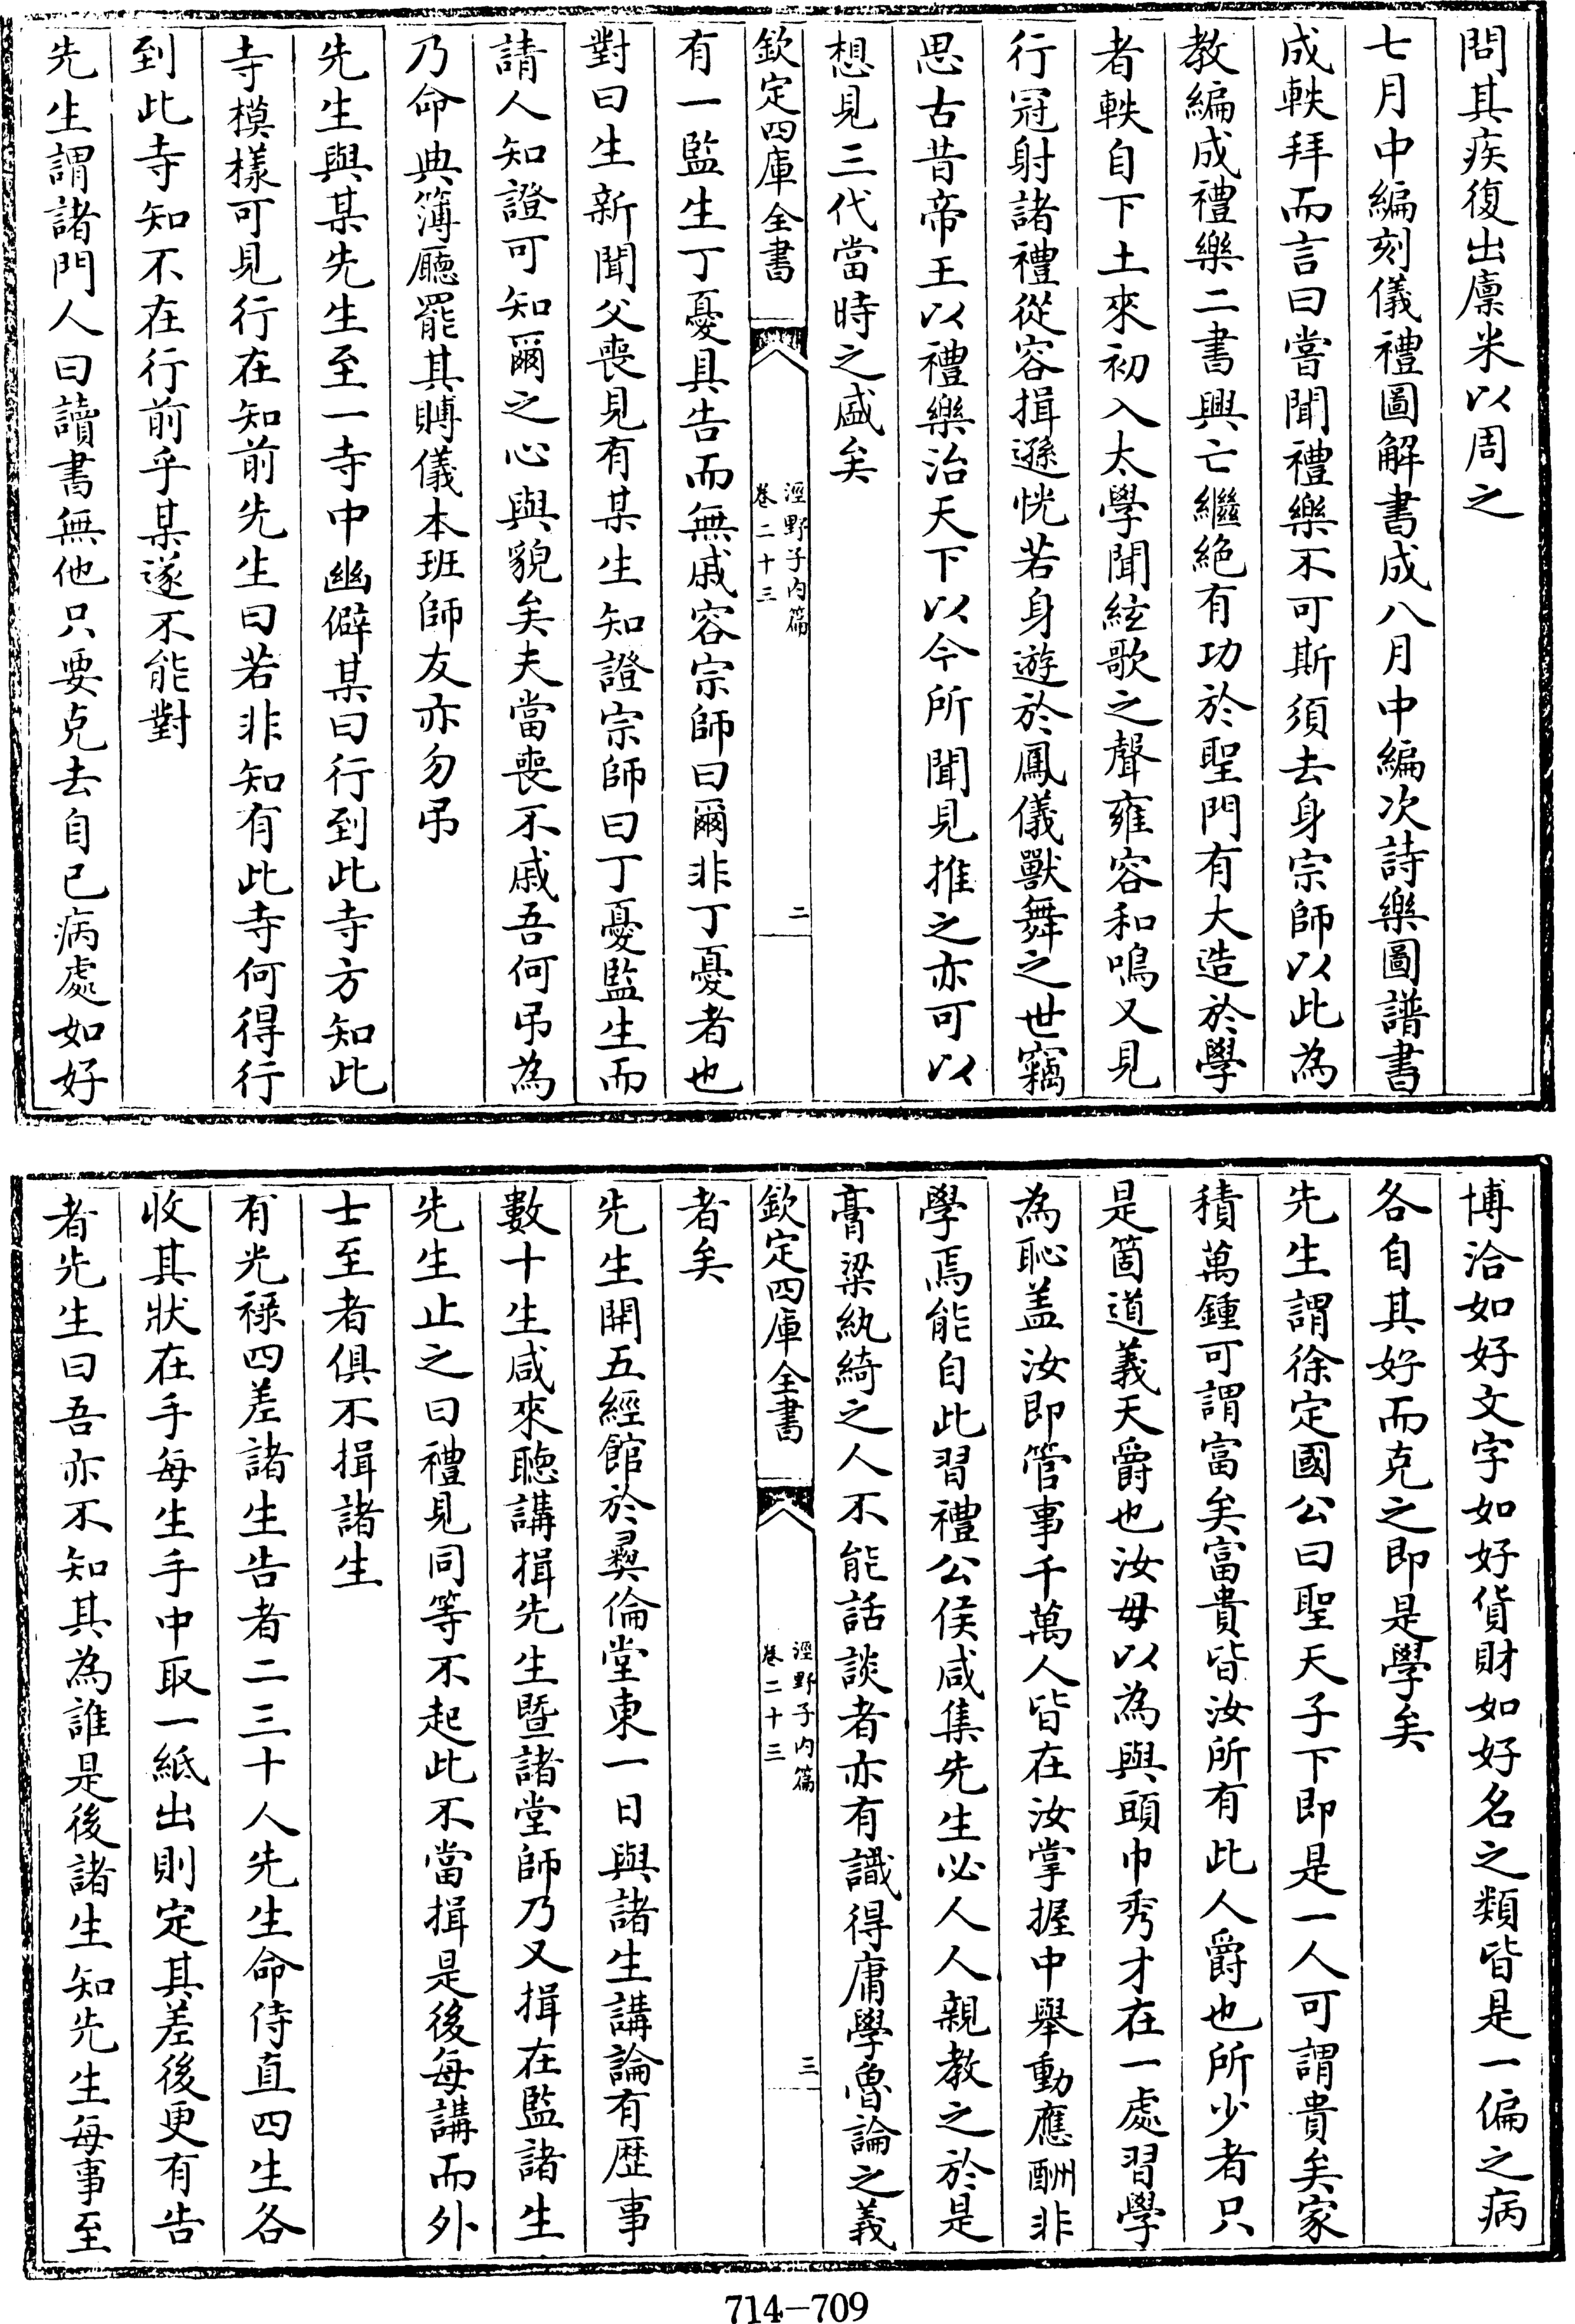 問其疾復出廪米以周之
七月中編刻儀禮圖解書成八月中編次詩樂圖譜書
成軼拜而言曰嘗聞禮樂不可斯須去身宗師以此為
教編成禮樂二書興亡繼絶有功於聖門有大造於學
者軼自下土來初入太學聞絃歌之聲雍容和鳴又見
行冠射諸禮從容揖遜恍若身遊於鳳儀獸舞之世竊
思古昔帝王以禮樂治天下以今所聞見推之亦可以
想見三代當時之盛矣
欽定四庫全書
涇野子内篇
卷二十三
二
有一監生丁憂具告而無戚容宗師曰爾非丁憂者也
對曰生新聞父喪見有某生知證宗師曰丁憂監生而
請人知證可知爾之心與貌矣夫當喪不戚吾何弔為
乃命典簿廳罷其賻儀本班師友亦勿弔
先生與某先生至一寺中幽僻某曰行到此寺方知此
寺模樣可見行在知前先生曰若非知有此寺何得行
到此寺知不在行前乎某遂不能對
先生謂諸門人曰讀書無他只要克去自己病處如好
博洽如好文字如好貨財如好名之類皆是一偏之病
各自其好而克之即是學矣
先生謂徐定國公曰聖天子下即是一人可謂貴矣家
積萬鍾可謂富矣富貴皆汝所有此人爵也所少者只
是箇道義天爵也汝毋以為與頭巾秀才在一處習學
為恥盖汝即管事千萬人皆在汝掌握中舉動應酬非
學焉能自此習禮公侯咸集先生必人人親教之於是
膏粱紈綺之人不能話談者亦有識得庸學魯論之義
欽定四庫全書
涇野子内篇
卷二十三
三
者矣
先生開五經館於彛倫堂東一日與諸生講論有歴事
數十生咸來聽講揖先生暨諸堂師乃又揖在監諸生
先生止之曰禮見同等不起此不當揖是後每講而外
士至者俱不揖諸生
有光禄四差諸生告者二三十人先生命侍直四生各
收其狀在手每生手中取一紙出則定其差後更有告
者先生曰吾亦不知其為誰是後諸生知先生每事至
714-709